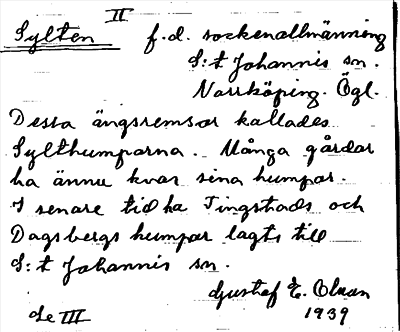 II
Sylten f.d. sockenallmänning
S:t Johannis sn.
Norrköping. Ögl.
Dessa ängsremsor kallades
Sylthumparna. Många gårdar
ha ännu kvar sina humpar.
I senare tid ha Tingstads och
Dagsbergs humpar lagts till
S:t Johannis sn.
Gustaf E. Olsson
de III 1939